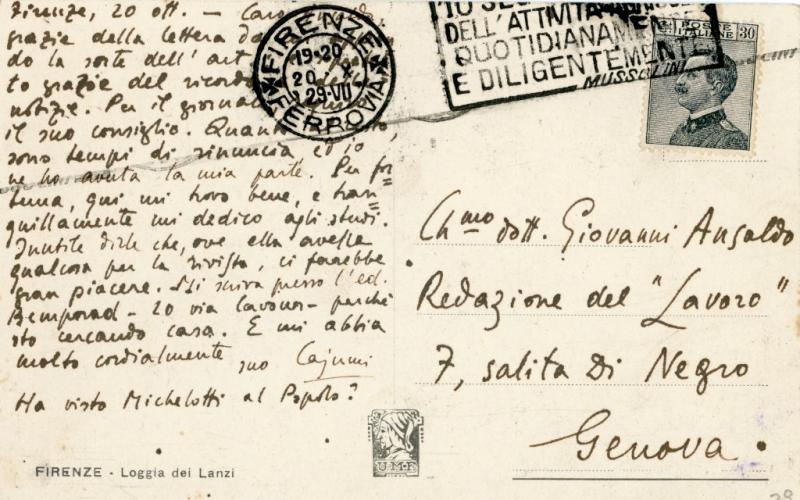 Firenze, 20 ott. – Caro
grazie della lettera
do la sorte dell'art
to grazie del ricordo
notizie. Per il giornal
il suo consiglio. Quant
sono tempi di rinuncia, ed io
ne ho avuta la mia parte. Per for=
tuna, qui mi trovo bene, e tran=
quillamente mi dedico agli studi.
Inutile dirle che, ove ella avesse
qualcosa per la rivista, ci farebbe
gran piacere. Mi scriva presso l'ed.
Bemporad – 20 via Cavour – perché
sto cercando casa. E mi abbia
molto cordialmente suo Cajumi
Ha visto Michelotti al Popolo?
FIRENZE - Loggia dei Lanzi
FIRENZE
19·20
20 X
29·VII
FERROVIA
DELL'ATTIVITÀ
QUOTIDIANAMEN
E DILIGENTEMENTE
MUSSOLINI
POSTE
ITALIANE
30
Ch.mo dott. Giovanni Ansaldo
Redazione del "Lavoro"
7, salita Di Negro
Genova.